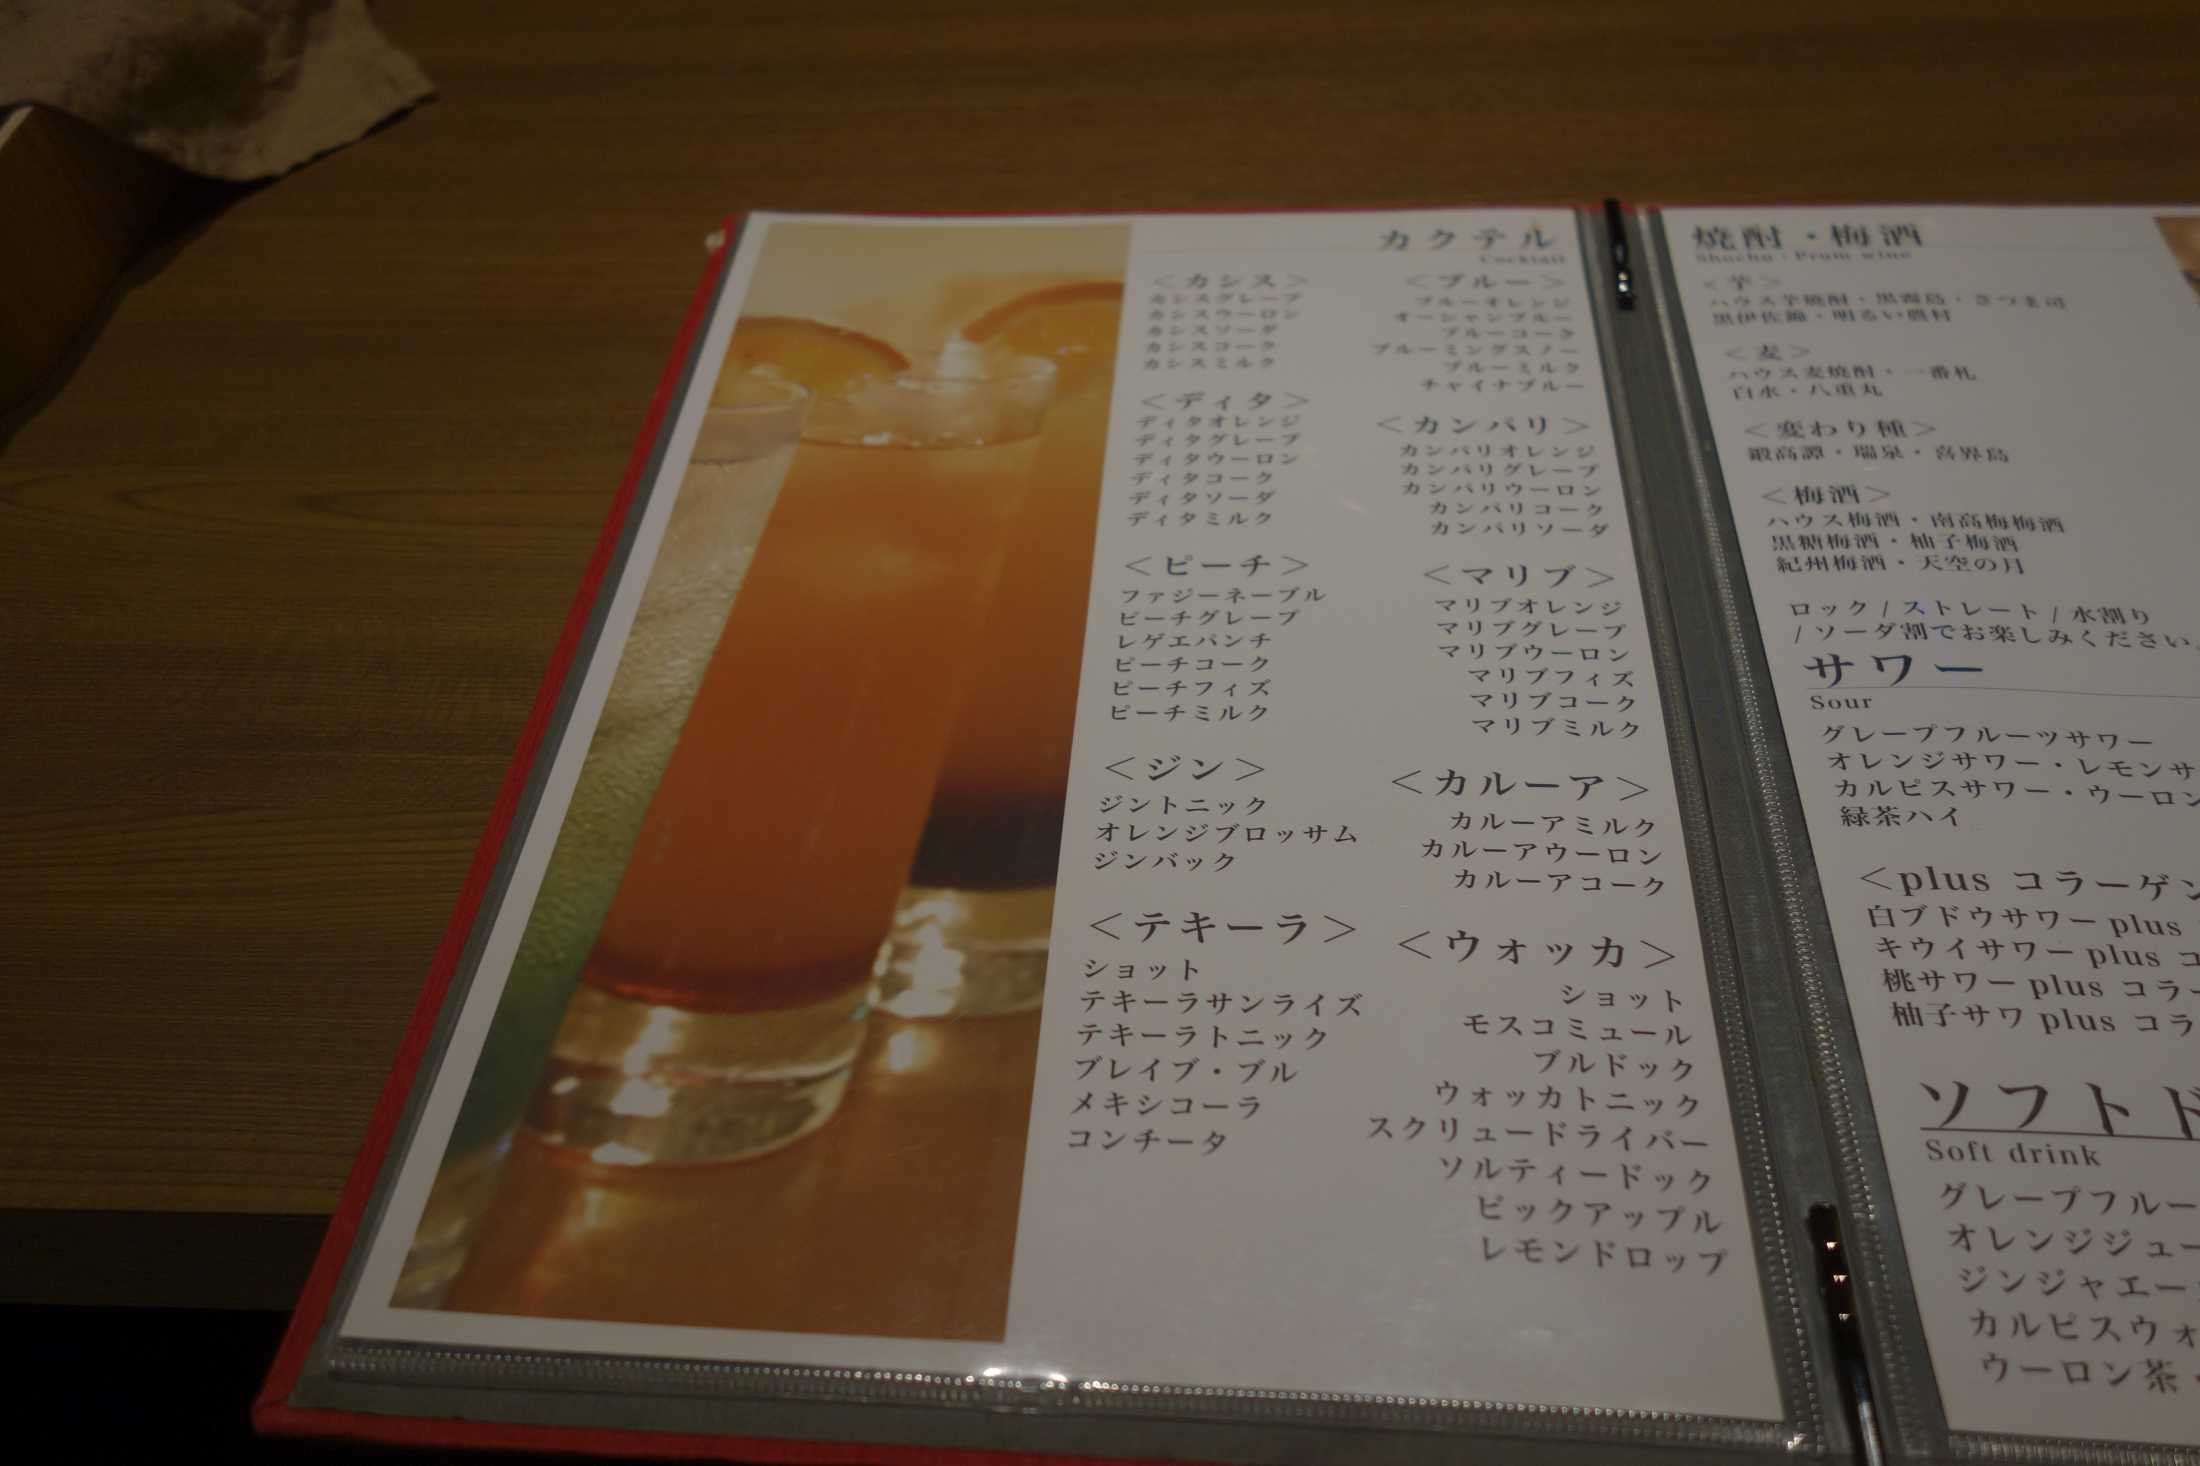 カクテル
Cocktail
＜カシス＞
カシスグレープ
カシスウーロン
カシスソーダ
カシスコーク
カシスミルク
＜ディタ＞
ディタオレンジ
ディタグレープ
ディタウーロン
ディタコーク
ディタソーダ
ディタミルク
＜ピーチ＞
ファジーネーブル
ピーチグレープ
レゲエパンチ
ピーチコーク
ピーチフィズ
ピーチミルク
＜ジン＞
ジントニック
オレンジブロッサム
ジンバック
＜テキーラ＞
ショット
テキーラサンライズ
テキーラトニック
ブレイブ・ブル
メキシコーラ
コンチータ
＜ブルー＞
ブルーオレンジ
オーシャンブルー
ブルーコーク
ブルーミングスノー
ブルーミルク
チャイナブルー
＜カンパリ＞
カンパリオレンジ
カンパリグレープ
カンパリウーロン
カンパリコーク
カンパリソーダ
＜マリブ＞
マリブオレンジ
マリブグレープ
マリブウーロン
マリブフィズ
マリブコーク
マリブミルク
＜カルーア＞
カルーアミルク
カルーアウーロン
カルーアコーク
＜ウォッカ＞
ショット
モスコミュール
ブルドック
ウォッカトニック
スクリュードライバー
ソルティードック
ビックアップル
レモンドロップ
焼酎・梅酒
Shochu・Prum wine
＜芋＞
ハウス芋焼酎・黒霧島・さつま司
黒伊佐錦・明るい農村
＜麦＞
ハウス麦焼酎・一番札
白水・八重丸
＜変わり種＞
鍛高譚・瑞泉・喜界島
＜梅酒＞
ハウス梅酒・南高梅梅酒
黒糖梅酒・柚子梅酒
紀州梅酒・天空の月
ロック / ストレート / 水割り
/ ソーダ割でお楽しみください。
サワー
Sour
グレープフルーツサワー
オレンジサワー・レモンサ
カルピスサワー・ウーロン
緑茶ハイ
＜plus コラーゲン
白ブドウサワー plus
キウイサワー plus コ
桃サワー plus コラー
柚子サワ plus コラ
ソフトド
Soft drink
グレープフルー
オレンジジュー
ジンジャエー
カルピスウォ
ウーロン茶・